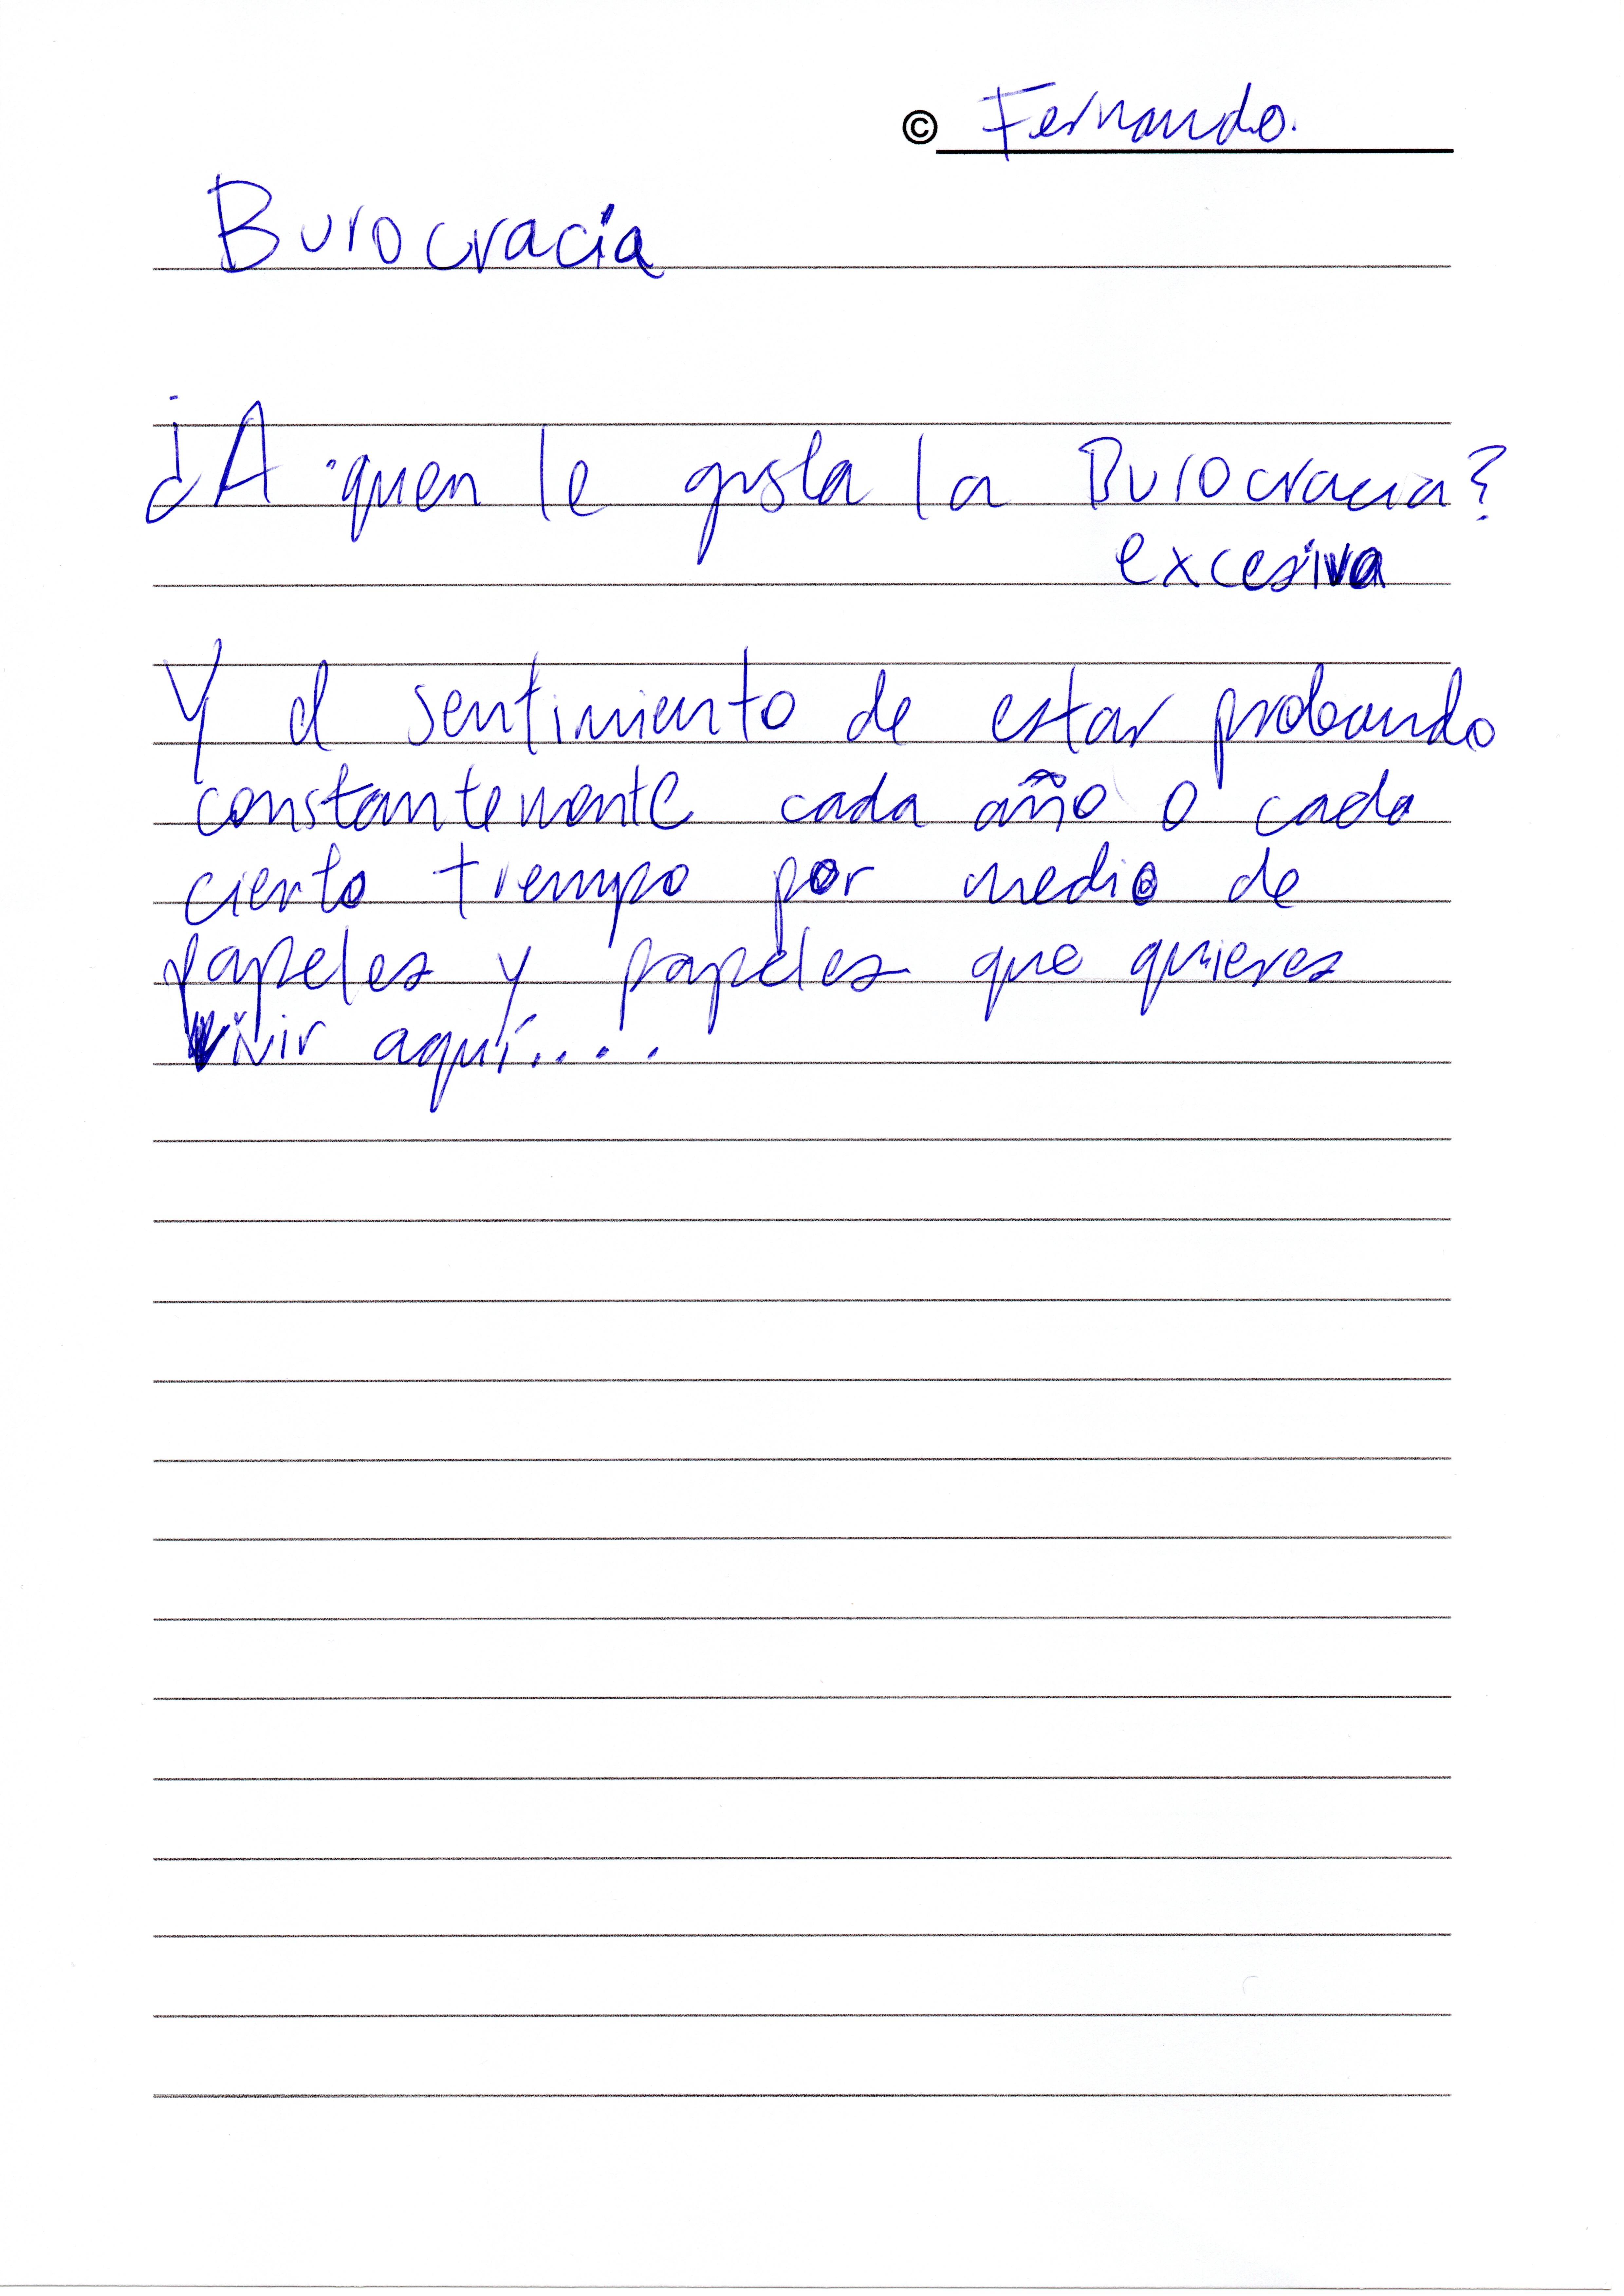 © Fernando.
Burocracia
¿A quen le gusta la Burocracia?
excesiva
Y el sentimiento de estar probando
constantemente cada año o cada
cierto tiempo por medio de
papeles y papeles que quieres
vivir aquí.....